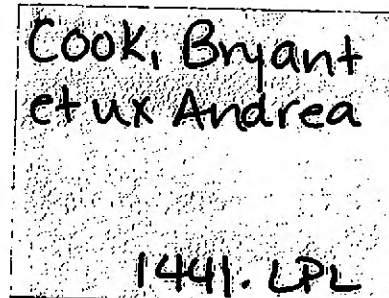 Cook, Bryant
et ux Andrea
1441. LPL